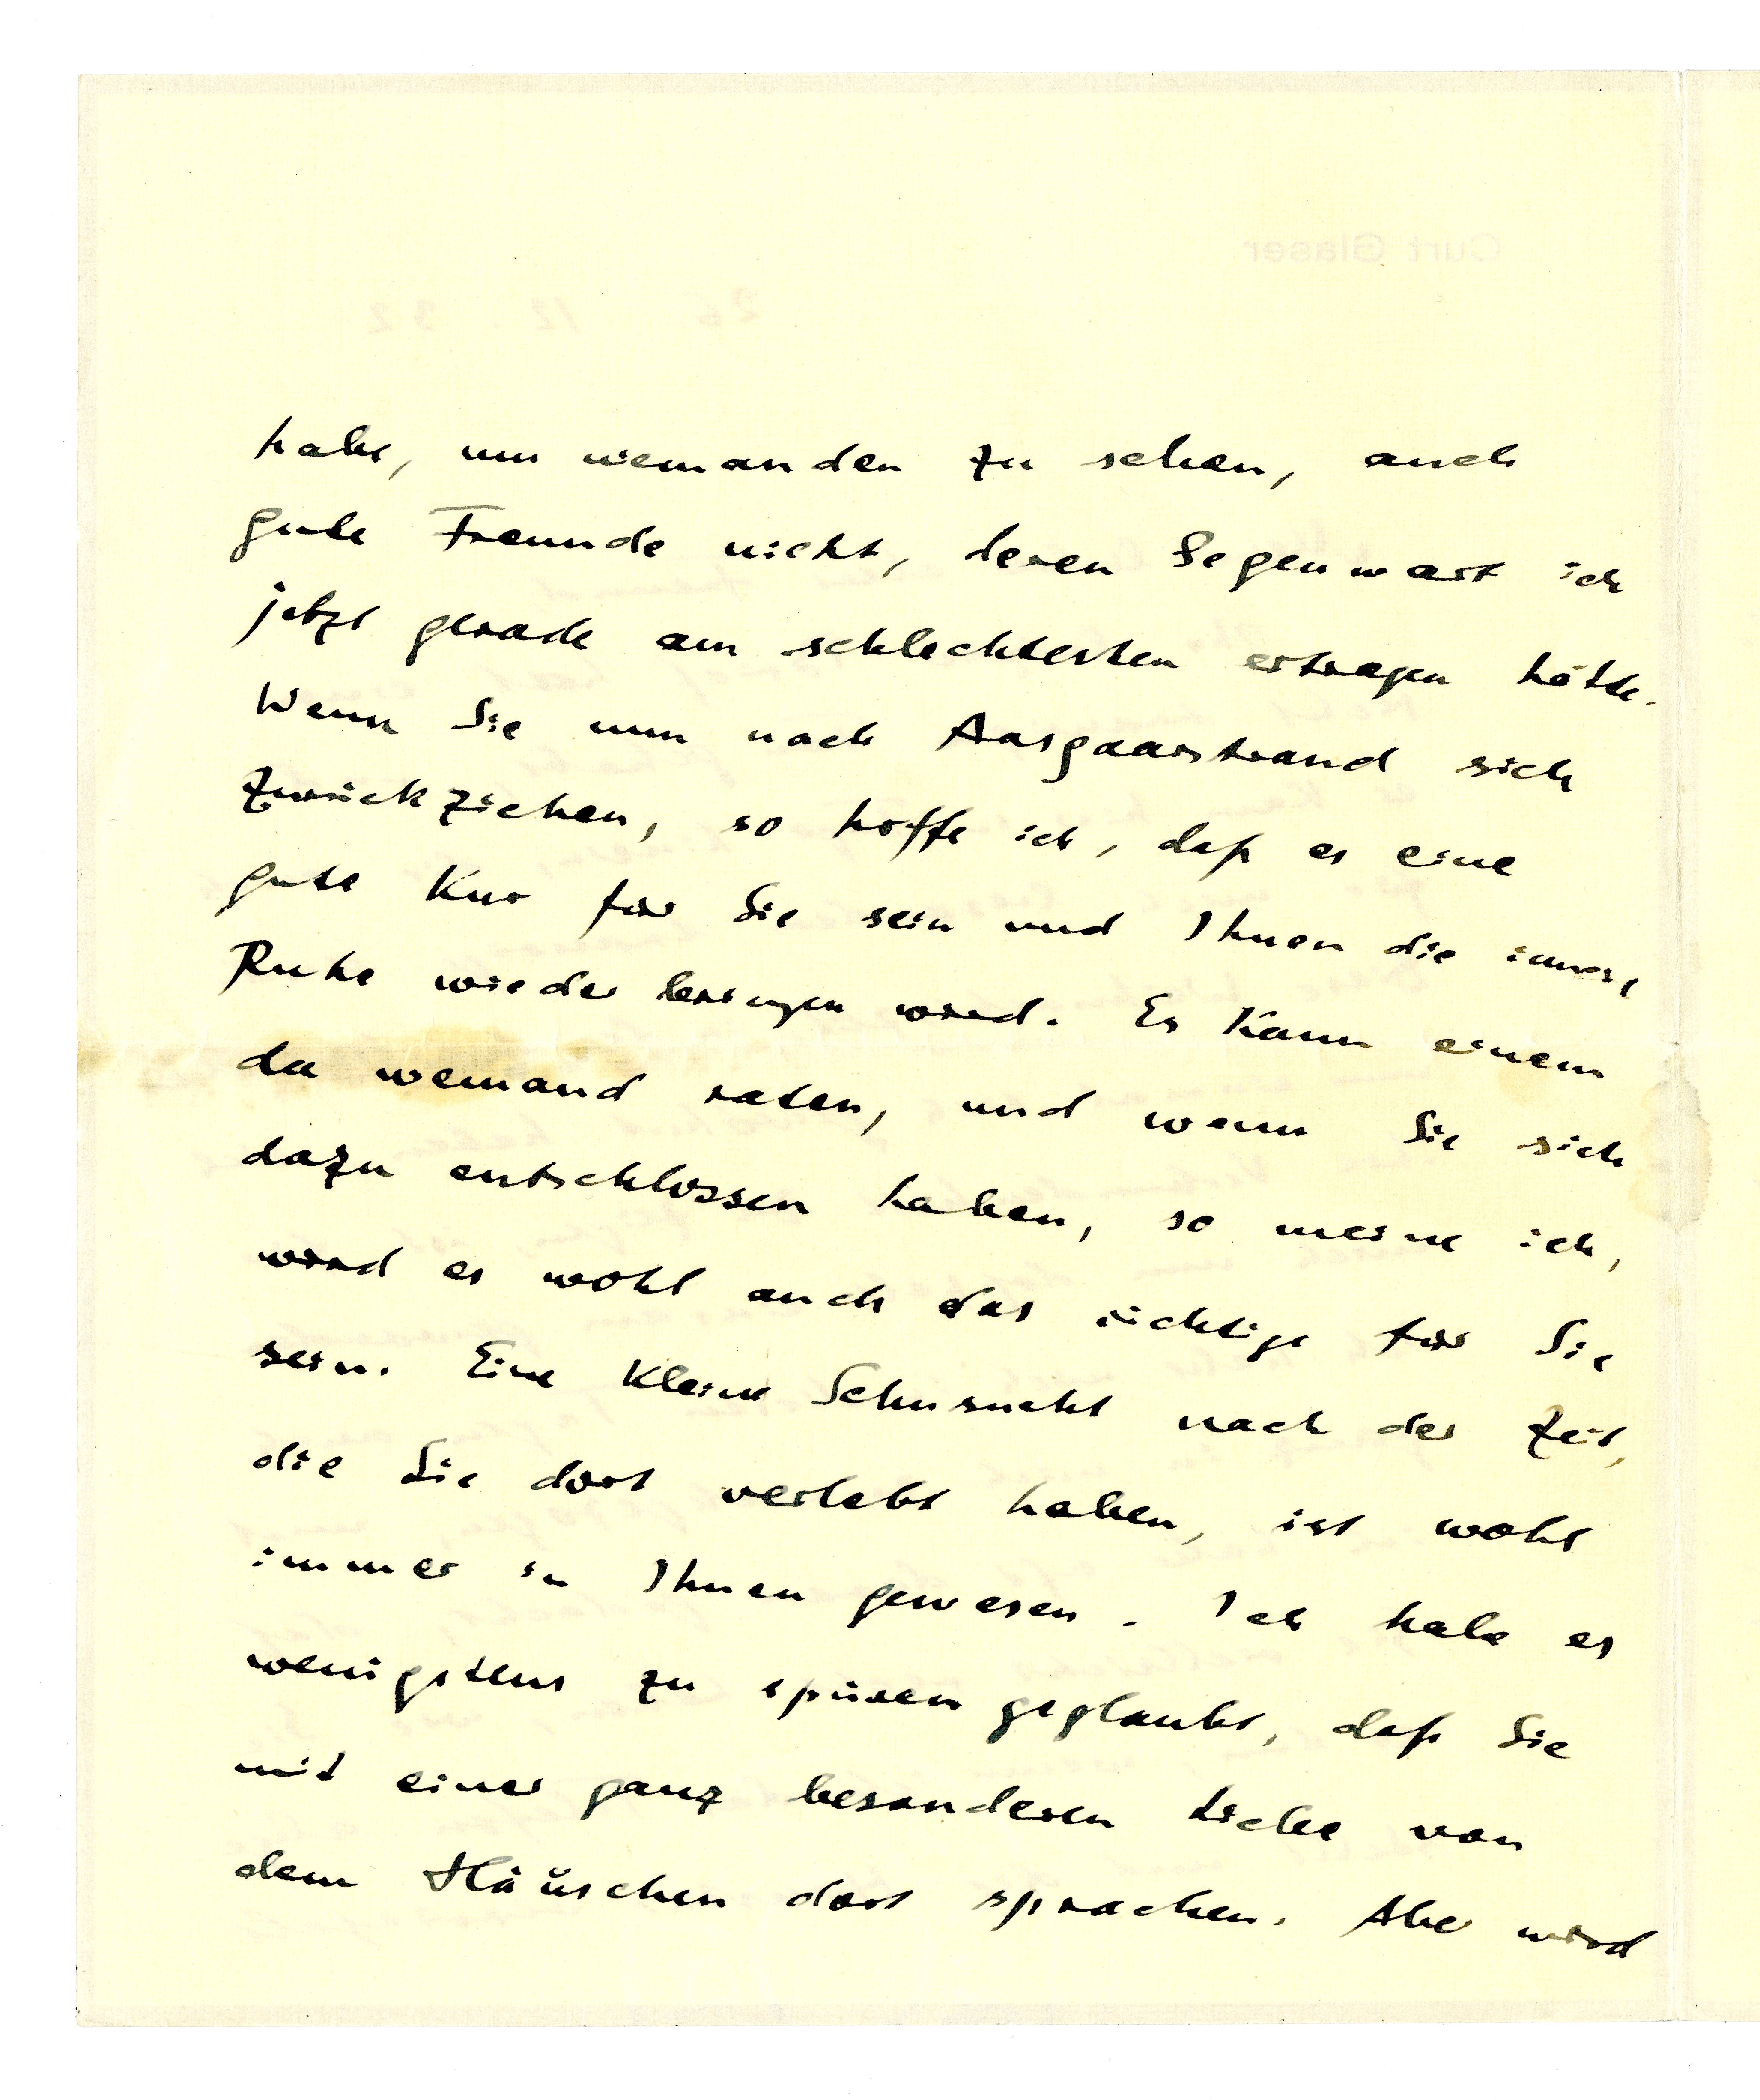 Curt Glaser
26 . 12 . 32
habe, um niemanden zu sehen, auch
gute Freunde nicht, deren Gegenwart ich
jetzt gerade am schlechtesten ertragen hätte.
Wenn Sie nun nach Aasgaarstrand sich
zurückziehen, so hoffe ich, daß es eine
gute Kur für Sie sein und Ihnen die innere
Ruhe wieder bringen wird. Es kann einem
da niemand raten, und wenn Sie sich
dazu entschlossen haben, so meine ich,
wird es wohl auch das richtige für Sie
sein. Eine kleine Sehnsucht nach der Zeit,
die Sie dort verlebt haben, ist wohl
immer in Ihnen gewesen. Ich habe es
wenigstens zu spüren geglaubt, daß Sie
mit einer ganz besonderen Liebe von
dem Häuschen dort sprachen. Aber wird